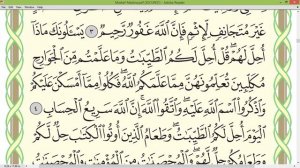 غَيْرَ مُتَجَانِفٍ لِّإِثْمٍ فَإِنَّ ٱللَّهَ غَفُورٌ رَّحِيمٌ ٣ يَسْـَٔلُونَكَ مَاذَآ
أُحِلَّ لَهُمْ قُلْ أُحِلَّ لَكُمُ ٱلطَّيِّبَـٰتُ وَمَا عَلَّمْتُم مِّنَ ٱلْجَوَارِحِ
مُكَلِّبِينَ تُعَلِّمُونَهُنَّ مِمَّا عَلَّمَكُمُ ٱللَّهُ فَكُلُوا۟ مِمَّآ أَمْسَكْنَ عَلَيْكُمْ
وَٱذْكُرُوا۟ ٱسْمَ ٱللَّهِ عَلَيْهِ وَٱتَّقُوا۟ ٱللَّهَ إِنَّ ٱللَّهَ سَرِيعُ ٱلْحِسَابِ ٤
ٱلْيَوْمَ أُحِلَّ لَكُمُ ٱلطَّيِّبَـٰتُ وَطَعَامُ ٱلَّذِينَ أُوتُوا۟ ٱلْكِتَـٰبَ حِلٌّ لَّكُمْ